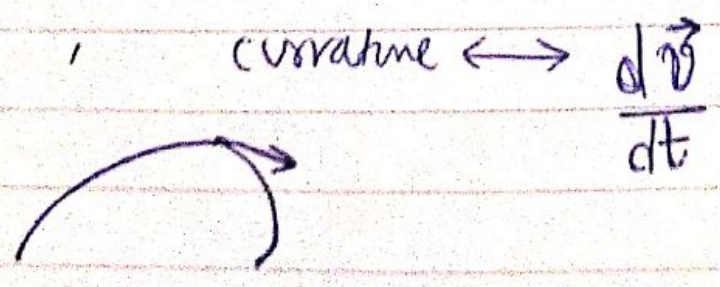 , curvature ⟷ d\vec{v}/dt